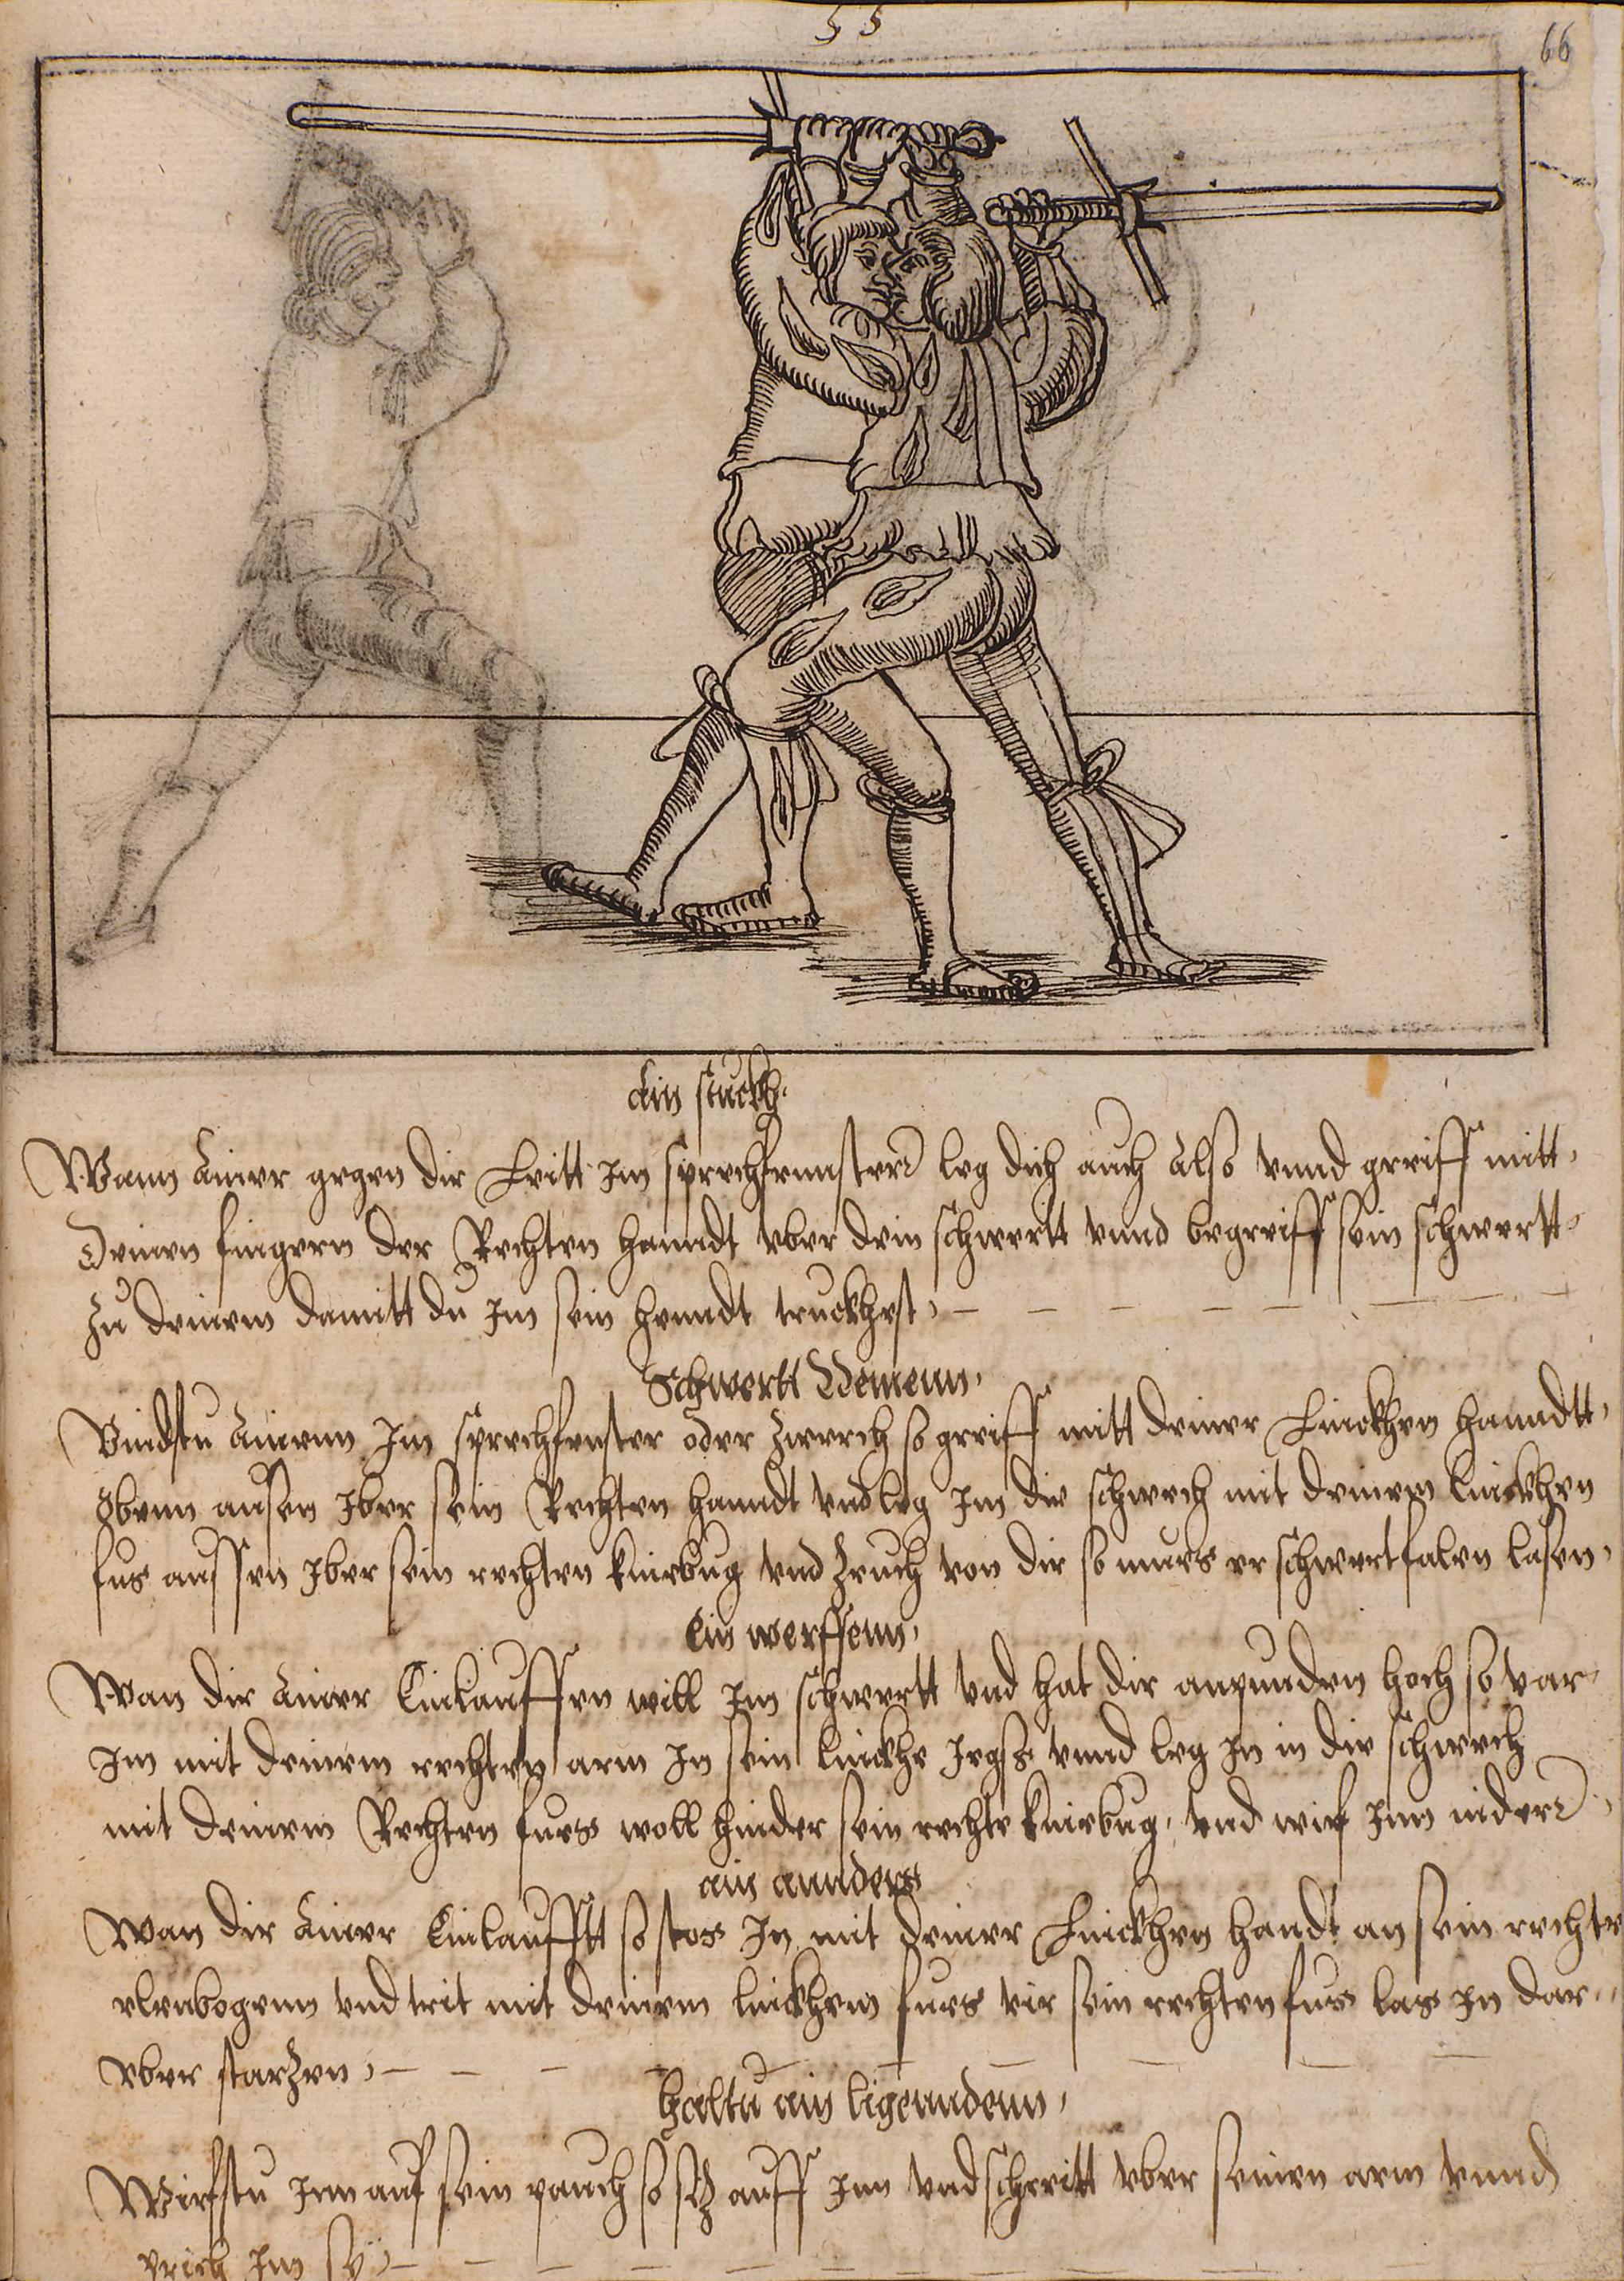 55
66
Ain stuckh.
Wann Ainer gegen dir Leitt Im sprechfennster leg dich auch Also vnnd greiff mitt
Deinen fingern der Rechten hanndt vber dein schwertt vnnd begreiff sein schwertt
zu deinem damitt du Im sein henndt truckhest
Schwertt Nemenn
Vindstu Ainenn Im sprechfenster oder zwerch so greiff mitt deiner Linckhen hanndtt
Obenn ausen Iber sein Rechten hanndt vnd leg Im die schwech mit deinem linckhen
fus aussen Iber sein rechten kniebug vnd zeuch von dir so mues er schwert falen lasen
Ein werffenn
Wan dir Ainer Einlauffen will Im schwertt vnd hat dir anpunden hoch so var
Im mit deinem rechten arm In sein linckhe Iegs vnnd leg In in die schwech
mit deinem Rechten fues woll hinder sein rechte kniebug vnd wirf Inn nider
ain annders
Wan dir Ainer Einlaufftt so stos In mit deiner Linckhen handt an sein rechte
elenbogenn vnd trit mit deinem linckhem fues vir sein rechten fus las in dar
vber starzen
haltu ain ligenndenn
Wirfstu Inn auf sein pauch so siz auff Inn vnd schreitt vber seinen arm vnnd
prich Im sy